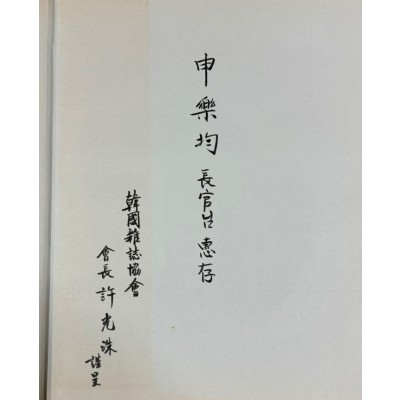 申樂均長官님惠存
韓國雜誌協會
會長 許光洙 謹呈